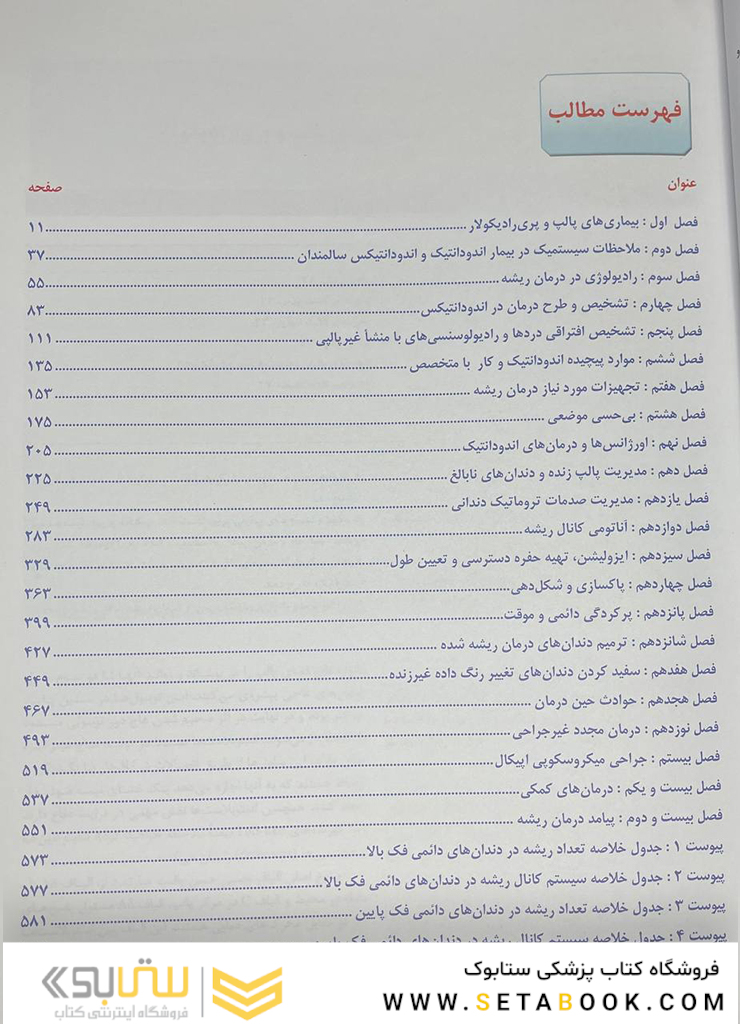 فهرست مطالب
عنوان صفحه
فصل اول : بیماری‌های پالپ و پری‌رادیکولار ۱۱
فصل دوم : ملاحظات سیستمیک در بیمار اندودانتیک و اندودانتیکس سالمندان ۳۷
فصل سوم : رادیولوژی در درمان ریشه ۵۵
فصل چهارم : تشخیص و طرح درمان در اندودانتیکس ۸۳
فصل پنجم : تشخیص افتراقی دردها و رادیولوسنسی‌های با منشأ غیرپالپی ۱۱۱
فصل ششم : موارد پیچیده اندودانتیک و کار با متخصص ۱۳۵
فصل هفتم : تجهیزات مورد نیاز درمان ریشه ۱۵۳
فصل هشتم : بی‌حسی موضعی ۱۷۵
فصل نهم : اورژانس‌ها و درمان‌های اندودانتیک ۲۰۵
فصل دهم : مدیریت پالپ زنده و دندان‌های نابالغ ۲۲۵
فصل یازدهم : مدیریت صدمات تروماتیک دندانی ۲۴۹
فصل دوازدهم : آناتومی کانال ریشه ۲۸۳
فصل سیزدهم : ایزولیشن، تهیه حفره دسترسی و تعیین طول ۳۲۹
فصل چهاردهم : پاکسازی و شکل‌دهی ۳۶۳
فصل پانزدهم : پرکردگی دائمی و موقت ۳۹۹
فصل شانزدهم : ترمیم دندان‌های درمان ریشه شده ۴۲۷
فصل هفدهم : سفید کردن دندان‌های تغییر رنگ داده غیرزنده ۴۴۹
فصل هجدهم : حوادث حین درمان ۴۶۷
فصل نوزدهم : درمان مجدد غیرجراحی ۴۹۳
فصل بیستم : جراحی میکروسکوپی اپیکال ۵۱۹
فصل بیست و یکم : درمان‌های کمکی ۵۳۷
فصل بیست و دوم : پیامد درمان ریشه ۵۵۱
پیوست ۱ : جدول خلاصه تعداد ریشه در دندان‌های دائمی فک بالا ۵۷۳
پیوست ۲ : جدول خلاصه سیستم کانال ریشه در دندان‌های دائمی فک بالا ۵۷۷
پیوست ۳ : جدول خلاصه تعداد ریشه در دندان‌های دائمی فک پایین ۵۸۱
پیوست ۴ : جدول خلاصه سیستم کانال ریشه در دندان‌های دائمی فک
فروشگاه کتاب پزشکی ستابوک
WWW.SETABOOK.COM
ستابوک
فروشگاه اینترنتی کتاب